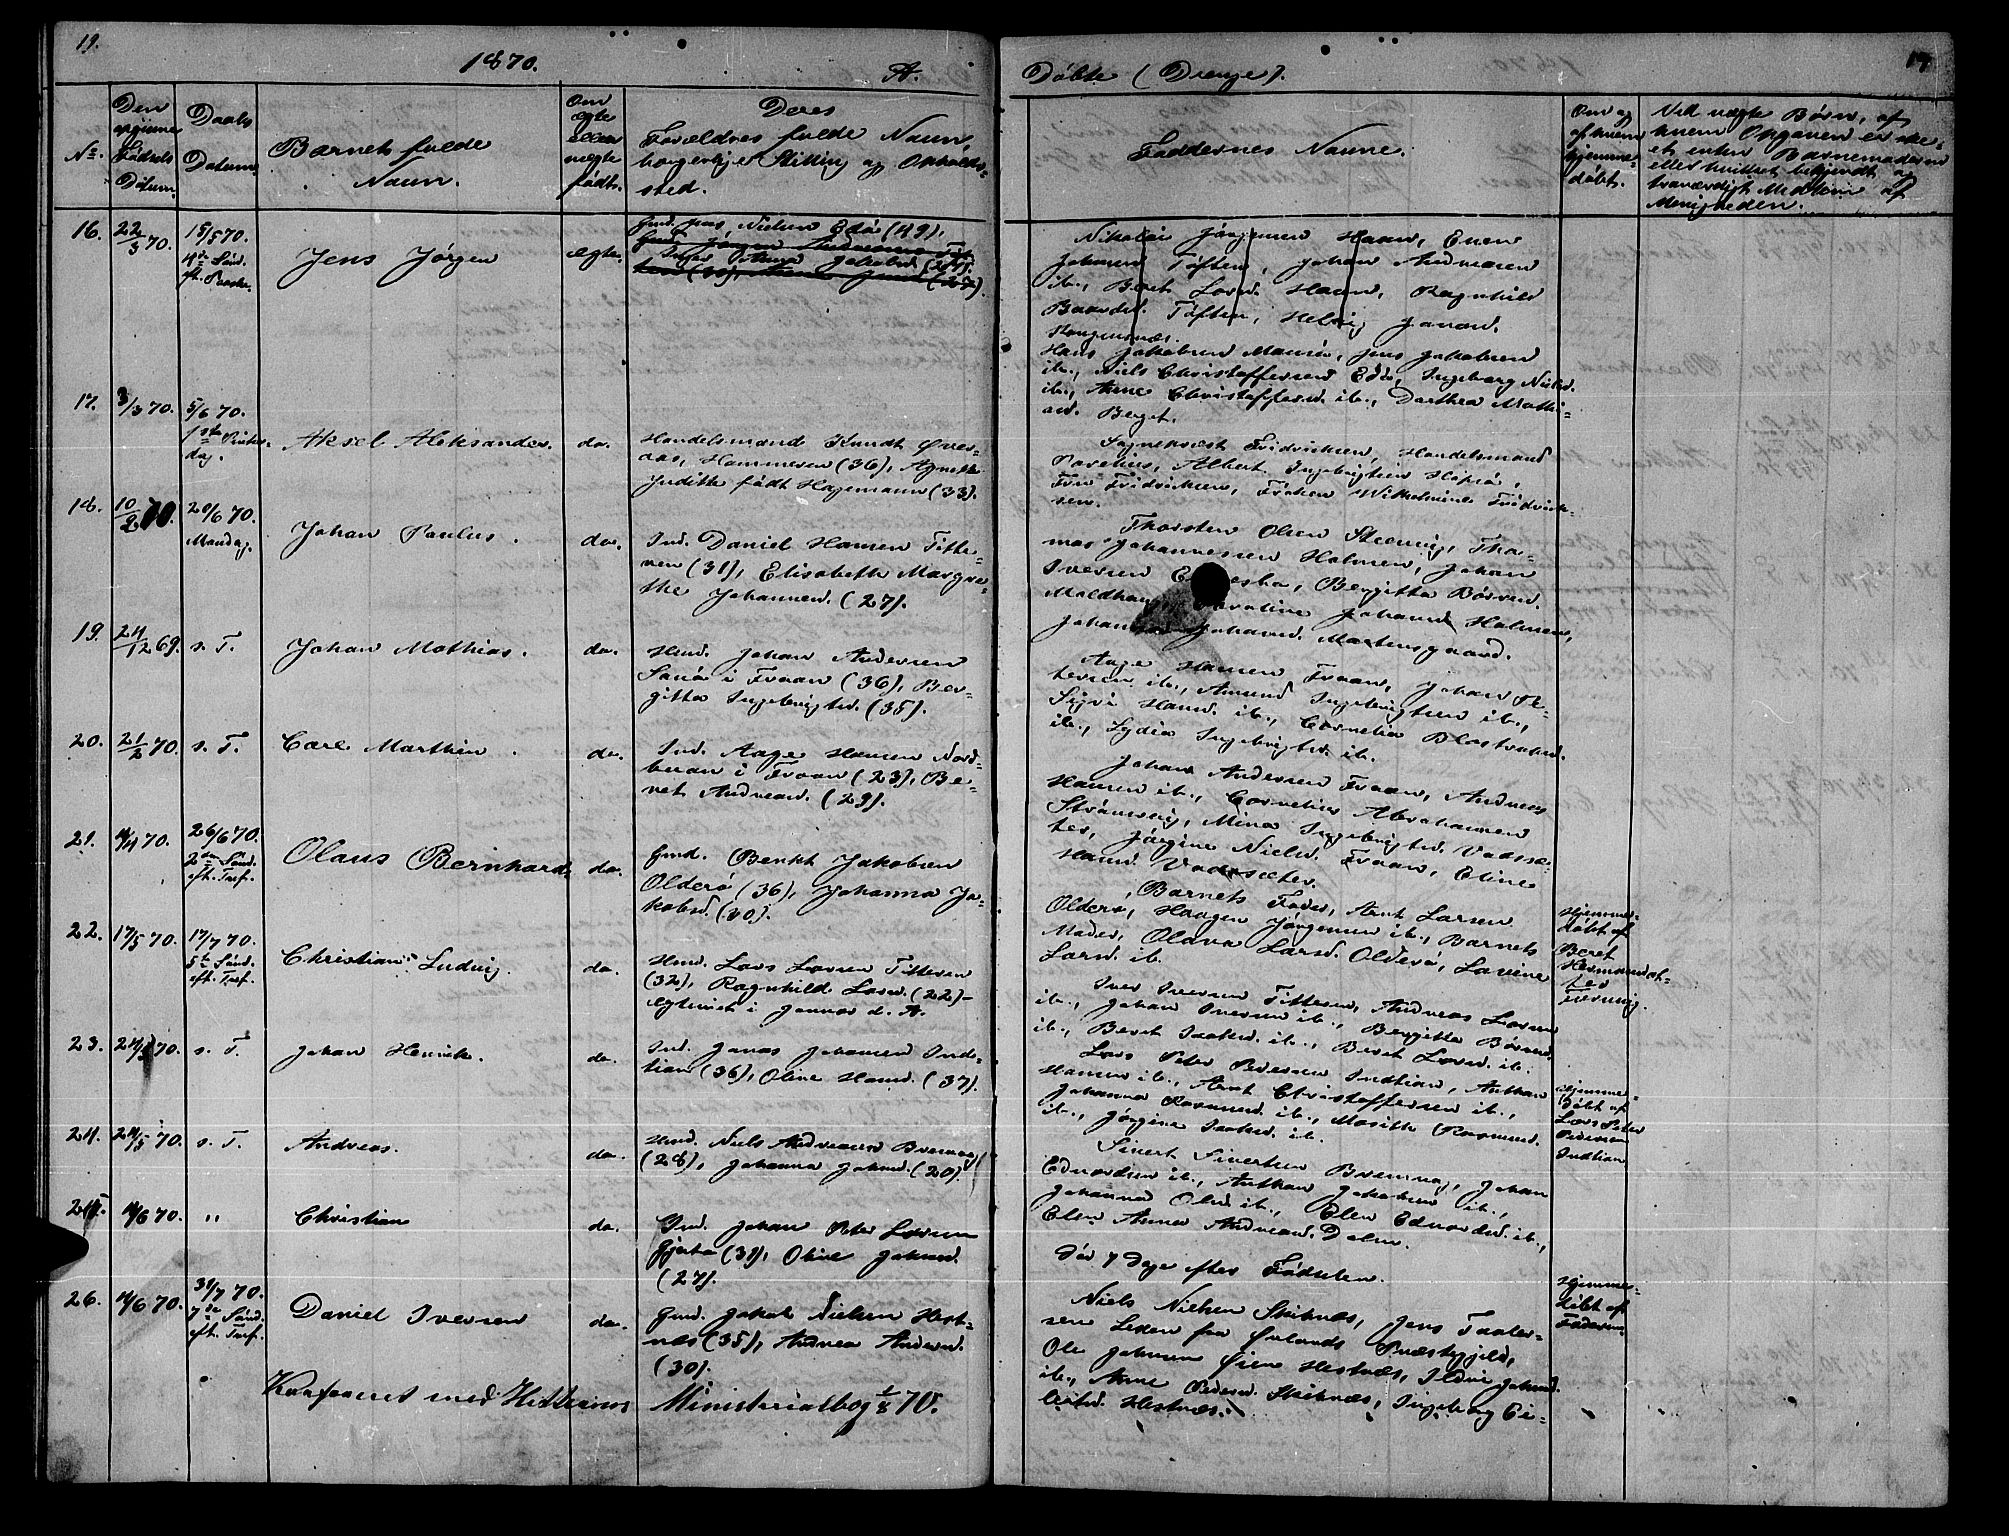 19.
1870.
A.
Døbte (Drenge).
19
No.
Den opgivne Fødsels Datum.
Daabs Datum.
Barnets fulde Navn.
Om ægte eller uægte født.
Deres
Forældres fulde Navn,
borgerlige Stilling og Opholds-
sted.
Faddernes Navne.
Om og af hvem hjemme-døbt.
Ved uægte Børn, af
hvem Opgaven er ske-
et, enten Barnemoderen
eller hvilket bekjendt og
troværdigt Medlem af
Menigheden.
16.
22/3 70.
15/5 70.
4de Sønd.
eft. Paaske.
Jens Jørgen
ægte.
Nielsen Edø (49),
Nikolai Jørgensen Havn, Enen
Johnsen Tøften, Johan Andreasen
ib., Beret Larsd. Havn, Ragnhild
Baardsd. Tøften, Helvig Jonasd.
Kongensnes.
Hans Jakobsen Mausø, Jens Jakobsen
ib., Niels Christoffersen Edø, Ingeborg Nielsd.
ib., Anne Christoffersd. ib., Dorthea Mathi-
asd. Berget.
17.
3/3 70.
5/6 70.
1ste Pintse-
dag.
Aksel Aleksander.
do.
Handelsmand Knudt Øver-
aas, Hammeren (36), Agnethe
Judithe født Hagemann (33).
Sogneprest Fridrichsen, Handelsmand
Parelius, Albert Ingebrigtsen Hopsø,
Fru Fridrichsen, Frøken Wilhelmine Fridrich-
sen.
18.
10/2 70.
20/6 70.
Mandag.
Johan Paulus.
do.
Ind. Daniel Hansen Titte-
ren (31), Elisabeth Margre-
the Johannesd. (27).
Thorsten Olsen Steensvig, Tho-
mas Johannessen Holmen, Johan
Iversen
Bergitta Børresd.
Johansd. Holmen,
Johansd. Martensgaard.
19.
24/12 69.
s. T.
Johan Mathias.
do.
Hmd. Johan Andersen
Sanø i Fraan (36), Ber-
gitta Ingebrigtsd. (35).
Aage Hansen Fraan, Johan Pe-
tersen ib., Amund Ingebrigtsen ib.,
Sigvi Hansd. ib., Cornelia
ib., Lydia Ingebrigtsd. ib.
20.
21/2 70.
s. T.
Carl Marthin.
do.
Ind. Aage Hansen Nord-
buan i Fraan (23), Be-
ret Andreasd. (29).
Johan Andersen Fraan, Andreas
Hansen ib., Cornelius Abrahamsen
Strømsvig, Mina Ingebrigtsd. Vadsæ-
ter, Jørgine Nielsd. Fraan, Eline
Hansd. Vadsæter.
21.
4/4 70.
26/6 70.
2den Sønd.
eft. Tref.
Olaus Bernhard.
do.
Gmd. Benkt Jakobsen
Olderø (36), Johanna Ja-
kobsd. (40).
Barnets Fader, Arnt Larsen
Olderø, Haagen Jørgensen ib., Barnets
Moder, Olava Larsd. Olderø, Lavine
Larsd. ib.
22.
17/5 70.
17/7 70.
5te Sønd.
eft. Tref.
Christian Ludvig.
do.
Hmd. Lars Larsen Titteren
(32), Ragnhild Larsd. (22)-
ægteviet i Januar d. A.
Iver Iversen Titteren, Andreas Larsen
ib., Johan Iversen ib., Bergitta Børresd.
ib., Beret Isaksd. ib., Beret Larsd. ib.
Hjemme-
døbt af
Beret
23.
24/5 70.
s. T.
Johan Henrik.
do.
Ind. Jonas Johansen Ind-
tian (36), Oline Hansd. (37).
Lars Peter Pedersen Indtian, Anthon
Hansen ib., Arnt Christoffersen ib.,
Johanna Rasmusd. ib., Marith Rasmusd.
ib., Jørgine Isaksd. ib.
Hjemme-
døbt af
Lars Peter
Pedersen
Indtian
24.
24/5 70.
s. T.
Andreas.
do.
Hmd. Niels Andreasen Bremvaag
(28), Johanna Johnsd. (20).
Sivert Sivertsen Bremvag, Johan
Edvardsen ib., Anthon Jakobsen ib.,
Johanna Olsd. ib., Elen Edvardsd. ib.,
Elen Anna Andreasd. Dalen.
25
4/6 70.
"
Christian
do.
Gmd. Johan Peter Larsen
Gjerta (31), Oline Johnsd.
(27).
Død 7 Dage efter Fødselen.
26.
4/6 70.
31/7 70.
7de Sønd.
eft. Tref.
Daniel Iversen
do.
Gmd. Jakob Nielsen Hest-
næs (35), Andrea Andersd.
(30).
Niels Nielsen Skiknæs, Jens Taales-
sen Leden fra Ørlands Præstegjeld,
Ole Johnsen Øien Hestnæs, Johnsd.
ib., Anne Pedersd. Skiknæs, Ingeborg Ei-
liertsd. Hestnæs.
Hjemme-
døbt af
Faderen
Konfereret med Hitterens Ministerialbog 1/8 70.